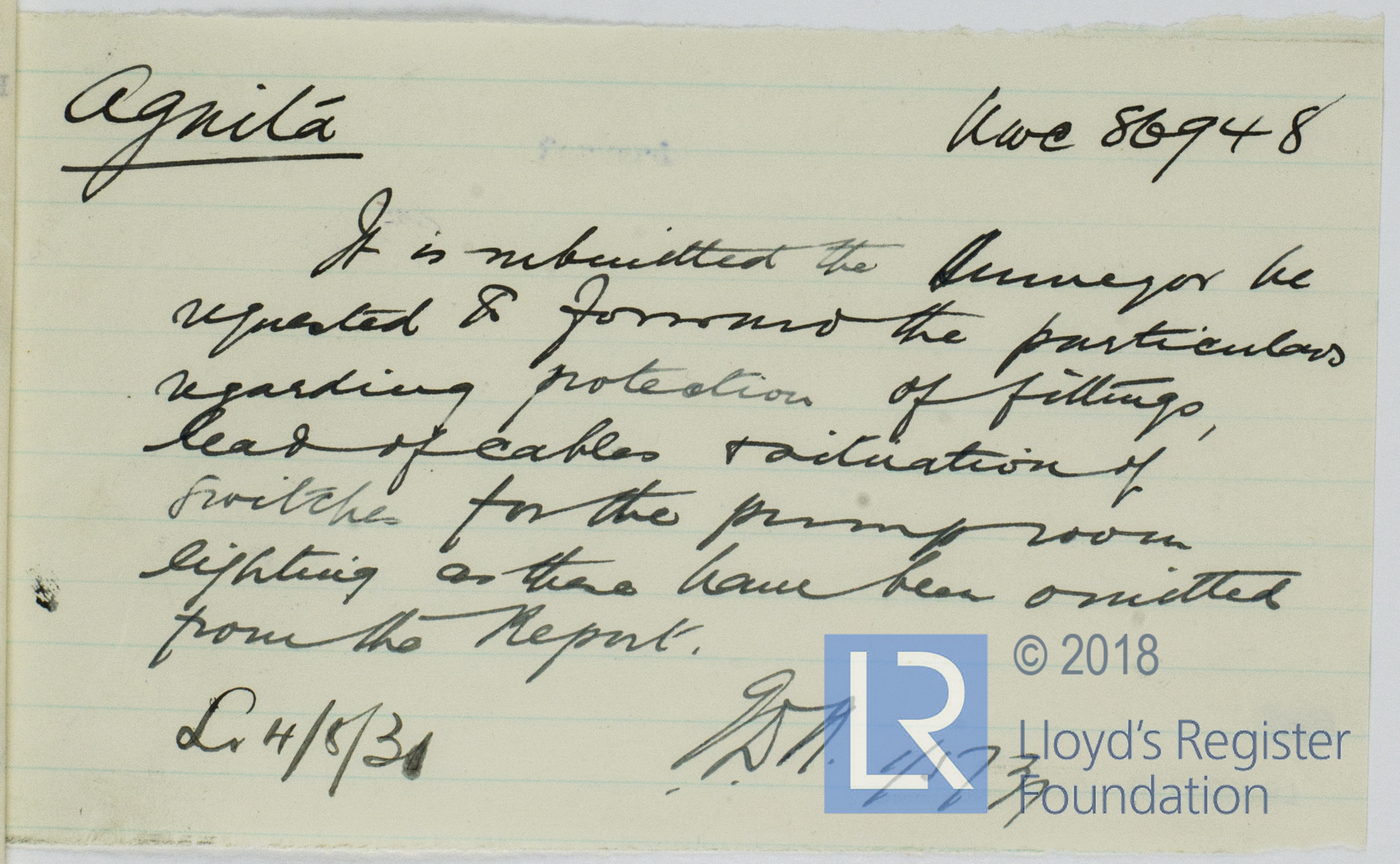 Agnita
Nwc 86948
It is submitted the Surveyor be
requested to forward the particulars
regarding protection of fittings,
lead of cables & situation of
switches for the pump room
lighting as these have been omitted
from the Report.
L. 4/8/31
LR
© 2018
Lloyd's Register
Foundation